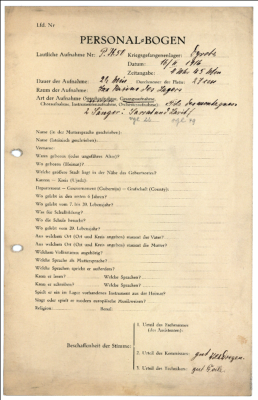 Lfd. Nr
PERSONAL-BOGEN
Lautliche Aufnahme Nr: P.K51 Kriegsgefangenenlager:
Datum: 1916
Zeitangabe: 45 Min
Dauer der Aufnahme: 2½ Min Durchmesser der Platte: 27 cm
Raum der Aufnahme: des Lagers
Art der Aufnahme (Sprechaufnahme, Gesangsaufnahme,
Choraufnahme, Instrumentenaufnahme, Orchesteraufnahme):
2 Sänger:
Name (in der Muttersprache geschrieben):
Name (lateinisch geschrieben):
Vorname:
Wann geboren (oder ungefähres Alter)?
Wo geboren (Heimat)?
Welche größere Stadt liegt in der Nähe des Geburtsortes?
Kanton — Kreis (Ujedz):
Departement — Gouvernement (Gubernija) — Grafschaft (County):
Wo gelebt in den ersten 6 Jahren?
Wo gelebt vom 7. bis 20. Lebensjahr?
Was für Schulbildung?
Wo die Schule besucht?
Wo gelebt vom 20. Lebensjahr?
Aus welchem Ort (Ort und Kreis angeben) stammt der Vater?
Aus welchem Ort (Ort und Kreis angeben) stammt die Mutter?
Welchem Volksstamm angehörig?
Welche Sprache als Muttersprache?
Welche Sprachen spricht er außerdem?
Kann er lesen? Welche Sprachen?
Kann er schreiben? Welche Sprachen?
Spielt er ein im Lager vorhandenes Instrument aus der Heimat?
Singt oder spielt er modern europäische Musikweisen?
Religion: Beruf:
1. Urteil des Fachmannes
(des Assistenten):
Beschaffenheit der Stimme:
2. Urteil des Kommissars: gut
3. Urteil des Technikers: gut